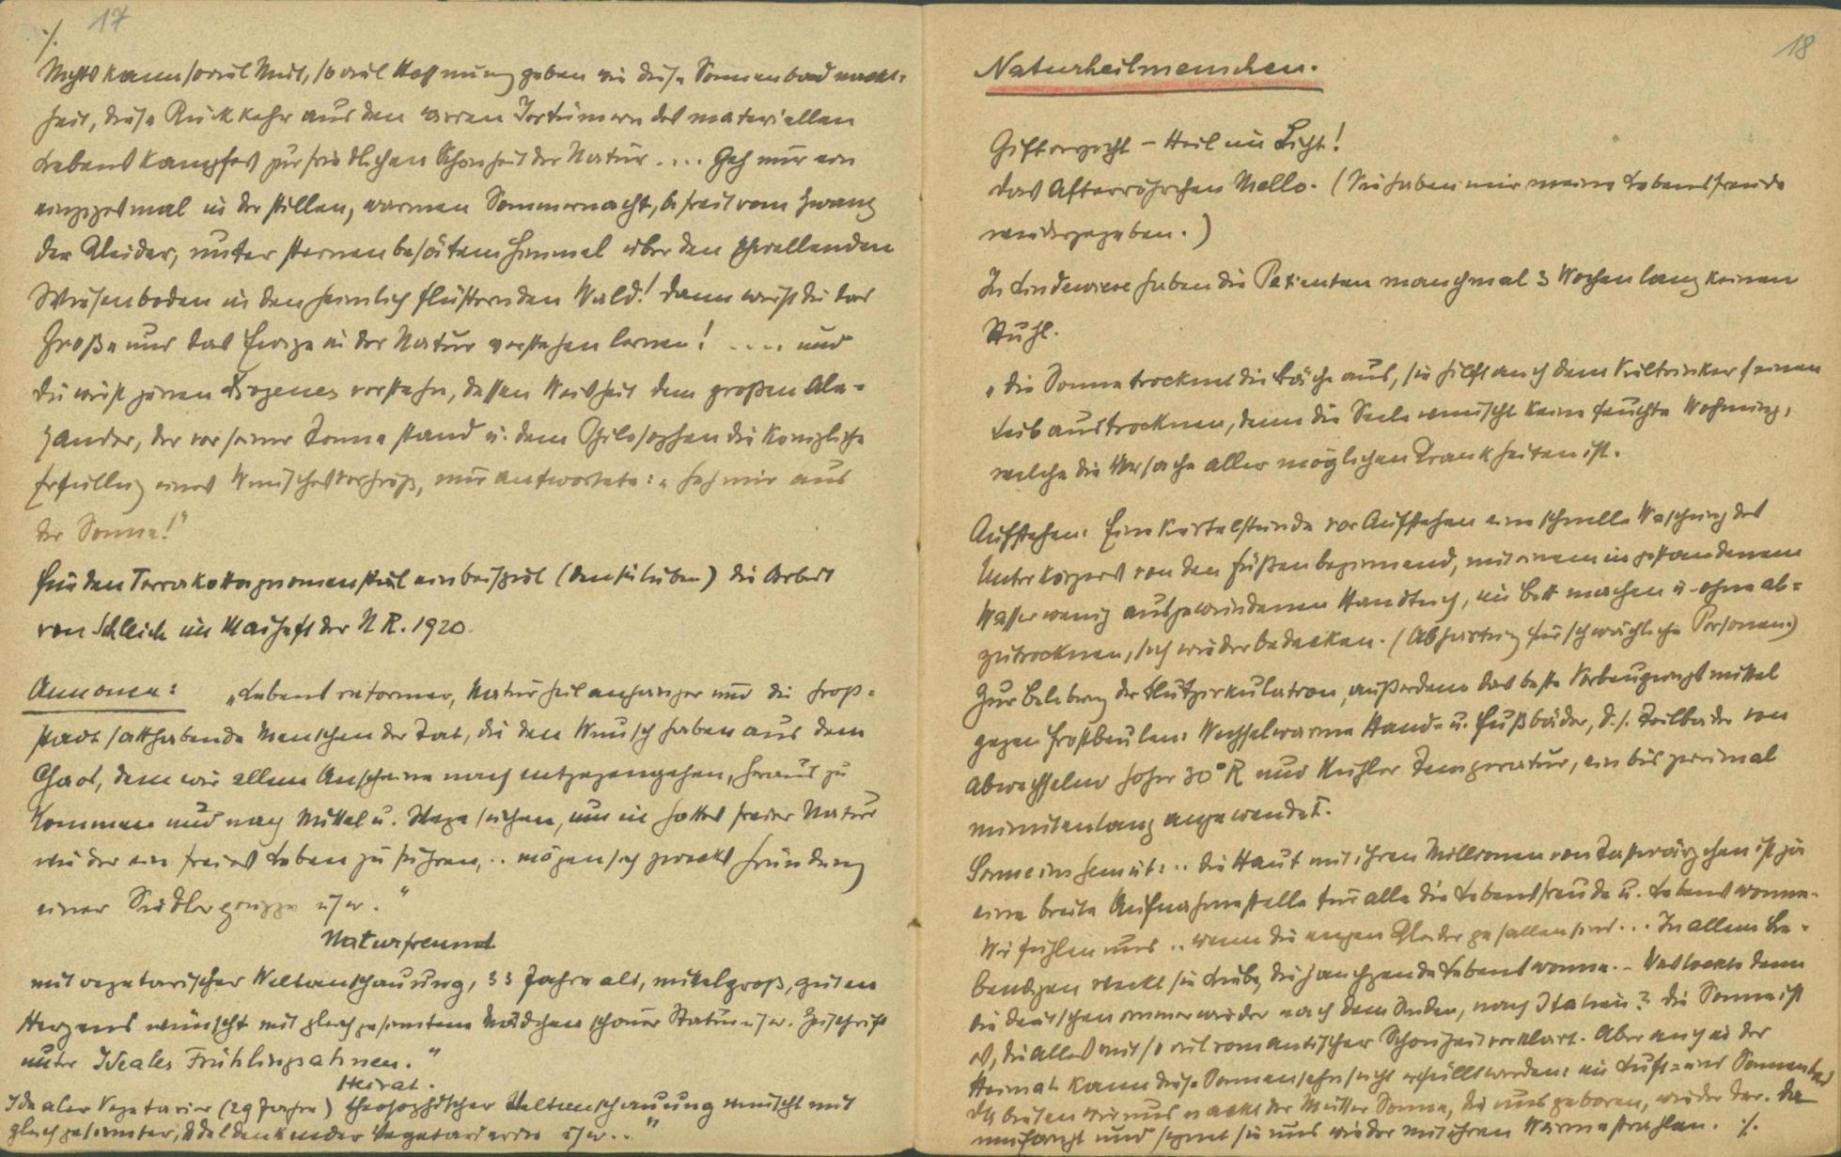 17
./.
Nichts kann soviel Mut, soviel Hoffnung geben wie diese Sonnenbad nackt-
heit, diese Rückkehr aus den wirren Irrtümern des materiellen
Lebenskampfes zur friedlichen Schönheit der Natur.... Geh nur ein
einzigesmal in der stillen, warmen Sommernacht, befreit vom Zwang
der Kleider, unter sternenbesätem Himmel über den schwellenden
Wiesenboden in den heimlich flüsternden Wald! Dann wirst du das
Große und das Ewige in der Natur verstehen lernen! .... und
du wirst jenen Diogenes verstehn, dessen Weisheit dem großen Ale-
xander, der vor seiner Tonne stand u. dem Philosophen die königliche
Erfüllung eines Wunsches verhieß, nur antwortete: „Geh mir aus
der Sonne!"
Für den Terrakottagnomenstil ein beispiel () die Arbeit
von Schleich im Maiheft der N R. 1920.
Annonce: „Lebensreformer, Naturheilanhänger und die gross-
stadt satthabende Menschen der Tat, die den Wunsch haben aus dem
Chaos, dem wir allem Anscheine nach entgegengehen, heraus zu
kommen und nach Mittel u. Wege suchen, um in Gottes freier Natur
wieder ein freies Leben zu führen, .. mögen sich zwecks Gründung
einer Siedlergruppe usw."
Naturfreund
mit vegetarischer Weltanschauung, 33 Jahre alt, mittelgroß, guten
Herzens wünscht mit gleichgesinntem Mädchen schöner Statur usw. Zuschrift
unter Ideales Frühlingsahnen."
Heirat.
Idealer Vegetarier (29 Jahre) theosophischer Weltanschauung wünscht mit
gleichgesinnter, edeldenkender Vegetarierin usw.."
18
Naturheilmenschen.
Gifterzicht – Heil im Licht!
das Afterröhrchen Mello. (Sie haben mir meine Lebensfreude
wiedergegeben.)
In Lindewiese haben die Patienten manchmal 3 Wochen lang keinen
Stuhl.
„Die Sonne trocknet die Bäche aus, sie hilft auch dem Vieltrinker seinen
Leib austrocknen, denn die Seele wünscht keine feuchte Wohnung,
welche die Ursache aller möglichen Krankheiten ist.
Aufstehen: Eine Viertelstunde vor Aufstehen eine schnelle Waschung des
Unterkörpers von den Füßen beginnend, mit einem in gestandenem
Wasser wenig ausgewundenen Handtuch, im Bett machen u. ohne ab-
zutrocknen, sich wieder bedecken. (Abhärtung für schwächliche Personen)
Zur Belebung der Blutzirkulation, außerdem das beste Vorbeugungsmittel
gegen Frostbeulen: Wechselwarme Hand- u. Fußbäder, d.s. Teilbäder von
abwechselnd hoher 30° R und kühler Temperatur, ein bis zweimal
minutenlang angewendet.
Sonne ins Gemüt: .. die Haut mit ihren Millionen von Tastwärzchen ist ja
eine breite Aufnahmestelle für alle die Lebensfreude u. Lebenswonne.
Wir fühlen uns .. wenn die engen Kleider gefallen sind... In allem Le-
bendigen weckt sie Liebe, die jauchzende Lebenswonne. – Was lockte denn
die deutschen immer wieder nach dem Süden, nach Italien? Die Sonne ist
es, die alles mit so viel romantischer Schönheit verklärt. Aber auch in der
Heimat kann diese Sonnensehnsucht erfüllt werden: im Luft- und Sonnenbad
Da bieten wir uns nackt der Mutter Sonne, die uns geboren, wieder dar. Da
umfängt und segnet sie uns wieder mit ihren Wärmestrahlen. ./.